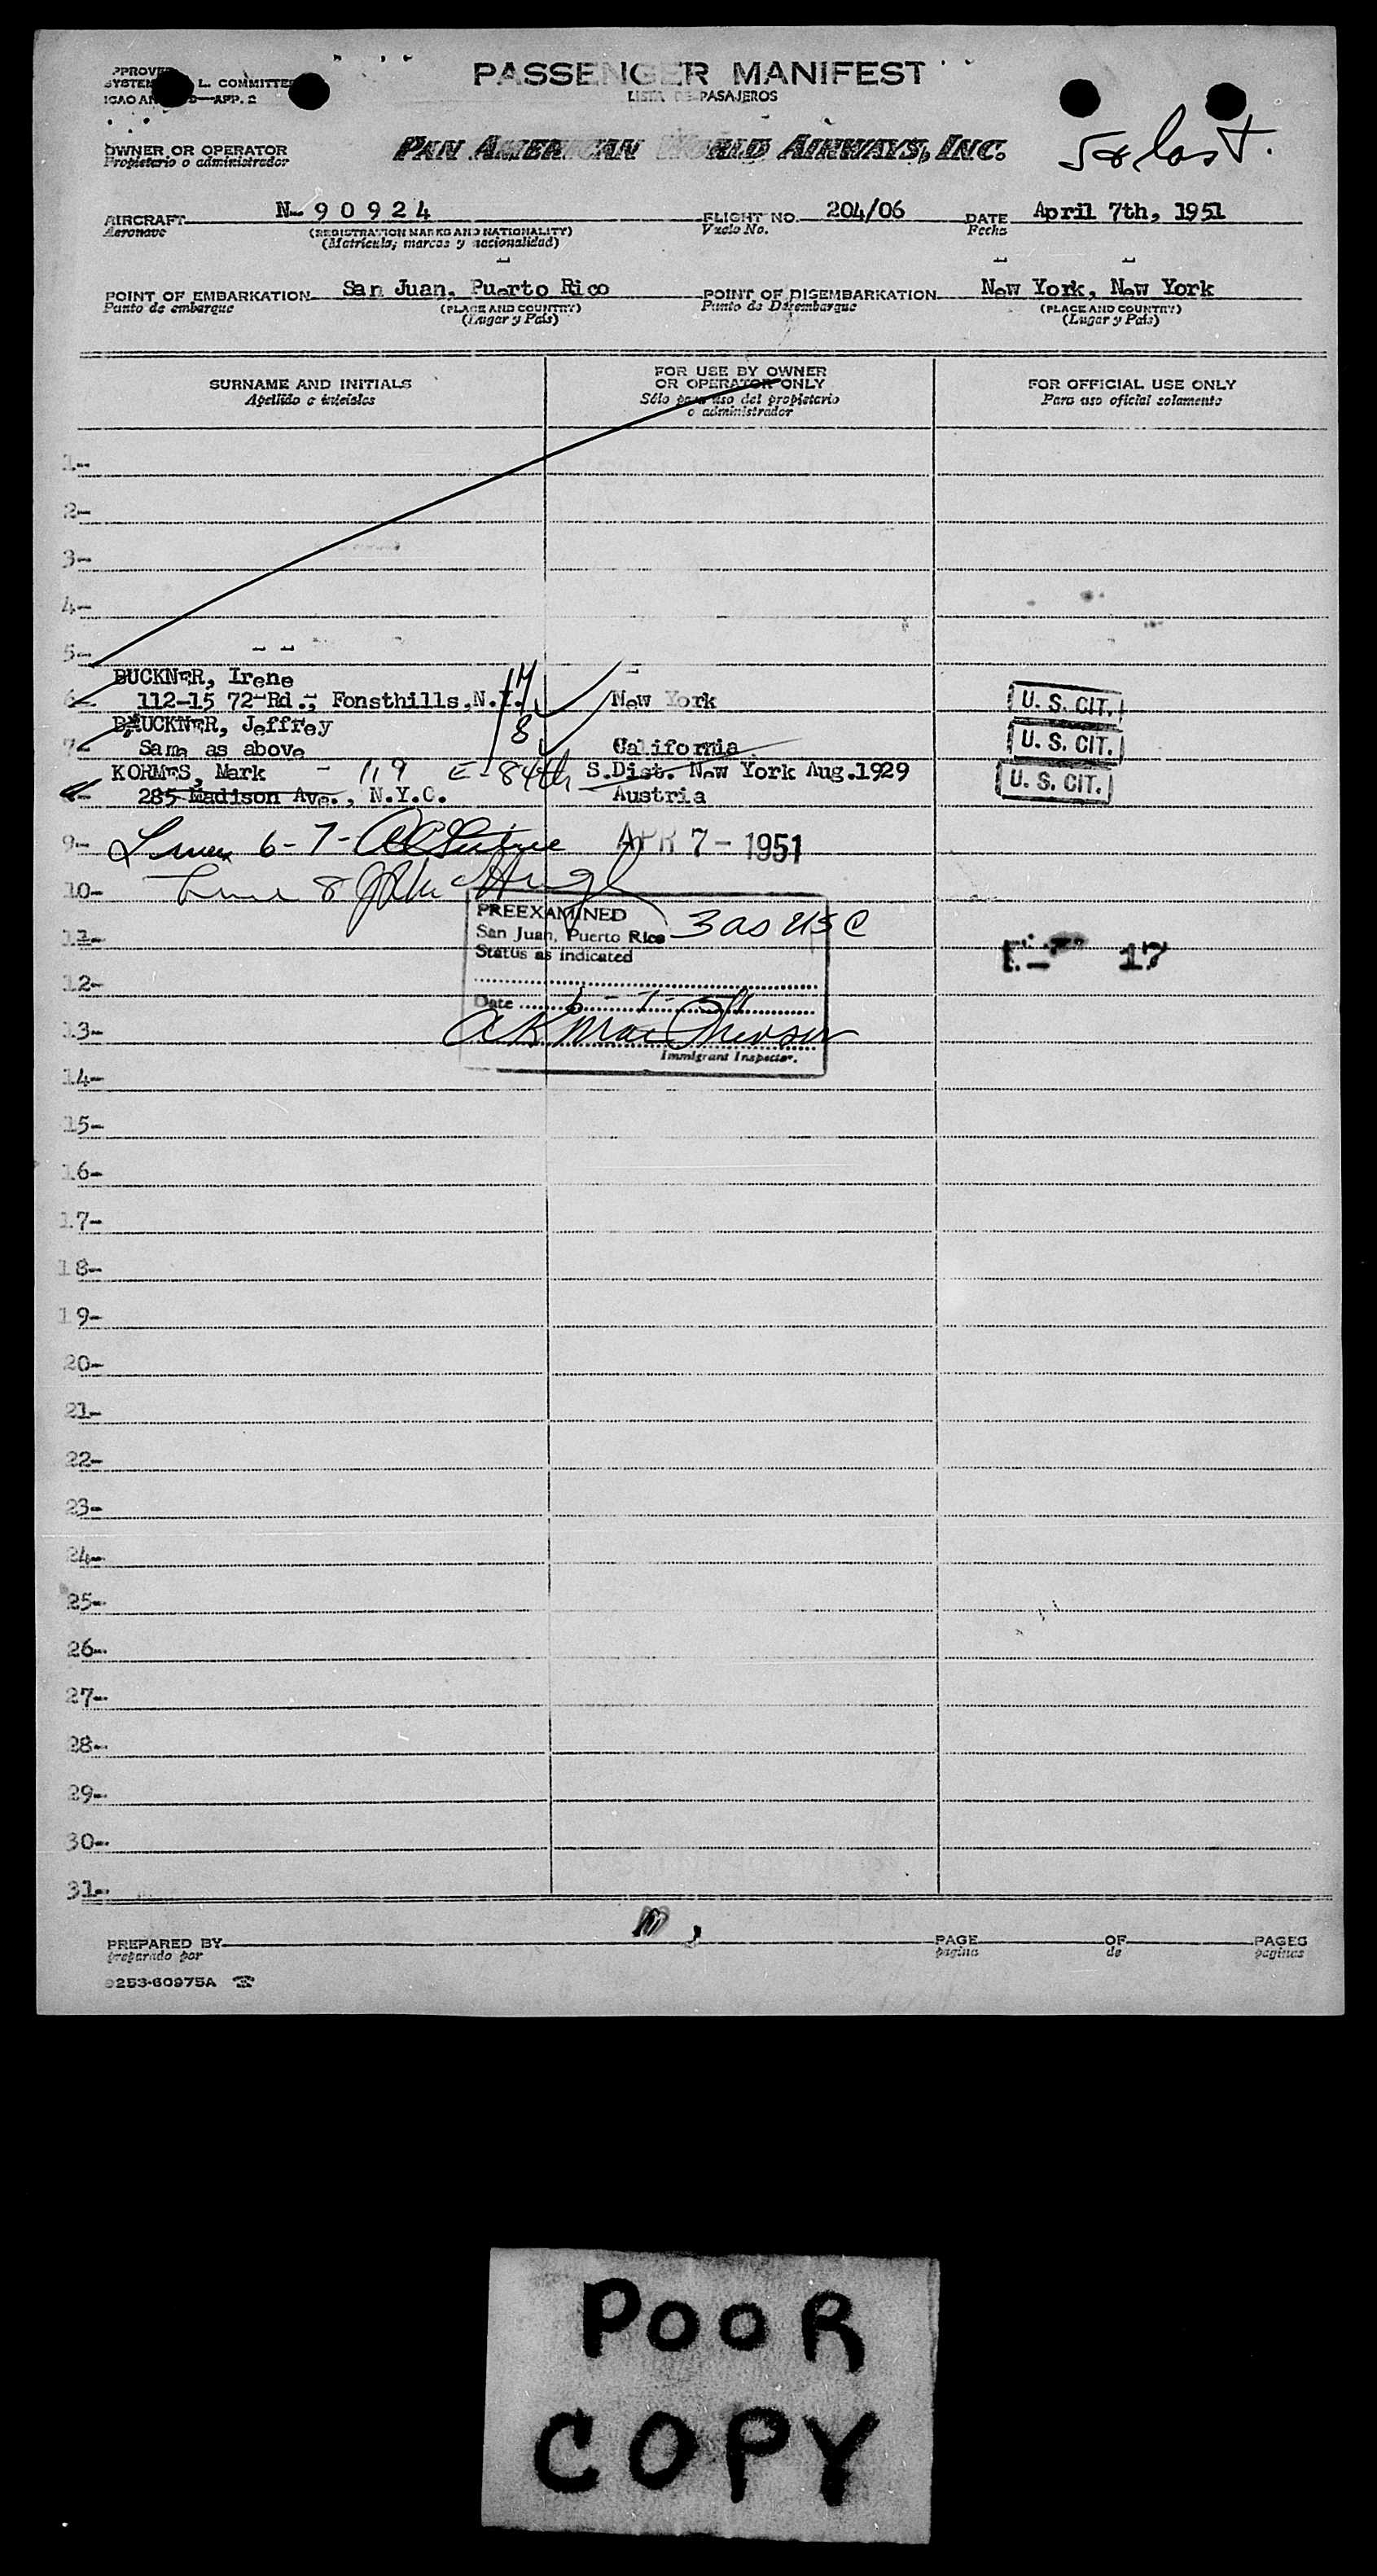 PASSENGER MANIFEST
LISTA DE PASAJEROS
L. COMMITTEE
APP. 2
OWNER OR OPERATOR
Propietario o administrador
PAN AMERICAN WORLD AIRWAYS, INC.
5 & last.
AIRCRAFT N-90924 FLIGHT NO. 204/06 DATE April 7th, 1951
Aeronave (REGISTRATION MARKS AND NATIONALITY) Vuelo No. Fecha
(Matrícula, marcas y nacionalidad)
POINT OF EMBARKATION San Juan, Puerto Rico POINT OF DISEMBARKATION New York, New York
Punto de embarque (PLACE AND COUNTRY) Punto de Desembarque (PLACE AND COUNTRY)
(Lugar y País) (Lugar y País)
SURNAME AND INITIALS FOR USE BY OWNER OR OPERATOR ONLY FOR OFFICIAL USE ONLY
Apellido e iniciales Sólo para uso del propietario o administrador Para uso oficial solamente
1-
2-
3-
4-
5-
BUCKNER, Irene
6- 112-15 72-Rd.; Fonsthills,N.Y. New York U. S. CIT.
BUCKNER, Jeffrey 8
7- Same as above California U. S. CIT.
KORMES, Mark - 119 E-84th S.Dist. New York Aug.1929 U. S. CIT.
8- 285 Madison Ave., N.Y.C. Austria
9- Lines 6-7- APR 7-1951
10- Line 8
PREEXAMINED
11- San Juan, Puerto Rico 3 as USC
Status as indicated
17
12-
Date
13-
Immigrant Inspector.
14-
15-
16-
17-
18-
19-
20-
21-
22-
23-
24-
25-
26-
27-
28-
29-
30-
31-
PREPARED BY PAGE OF PAGES
preparado por página de páginas
9253-60975A
POOR
COPY